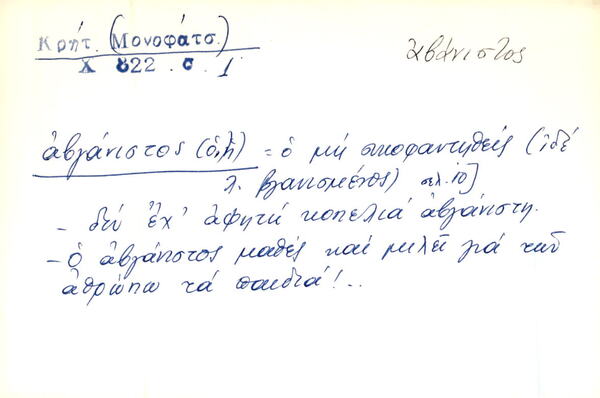 Κρήτ. (Μονοφάτσ.)
Χ 822 . σ. 1
ἀβάνιστος
ἀβγάνιστος (ὁ, ἡ) = ὁ μή συκοφαντηθείς (ἰδέ
λ. βγανισμένος) σελ. 10]
- δέν ἔχ' ἀφητή κοπελιά ἀβγάνιστη.
- ὁ ἀβγάνιστος μαθές καί μιλεῖ γιά τῶν
ἀθρώπω τά παιδιά!..